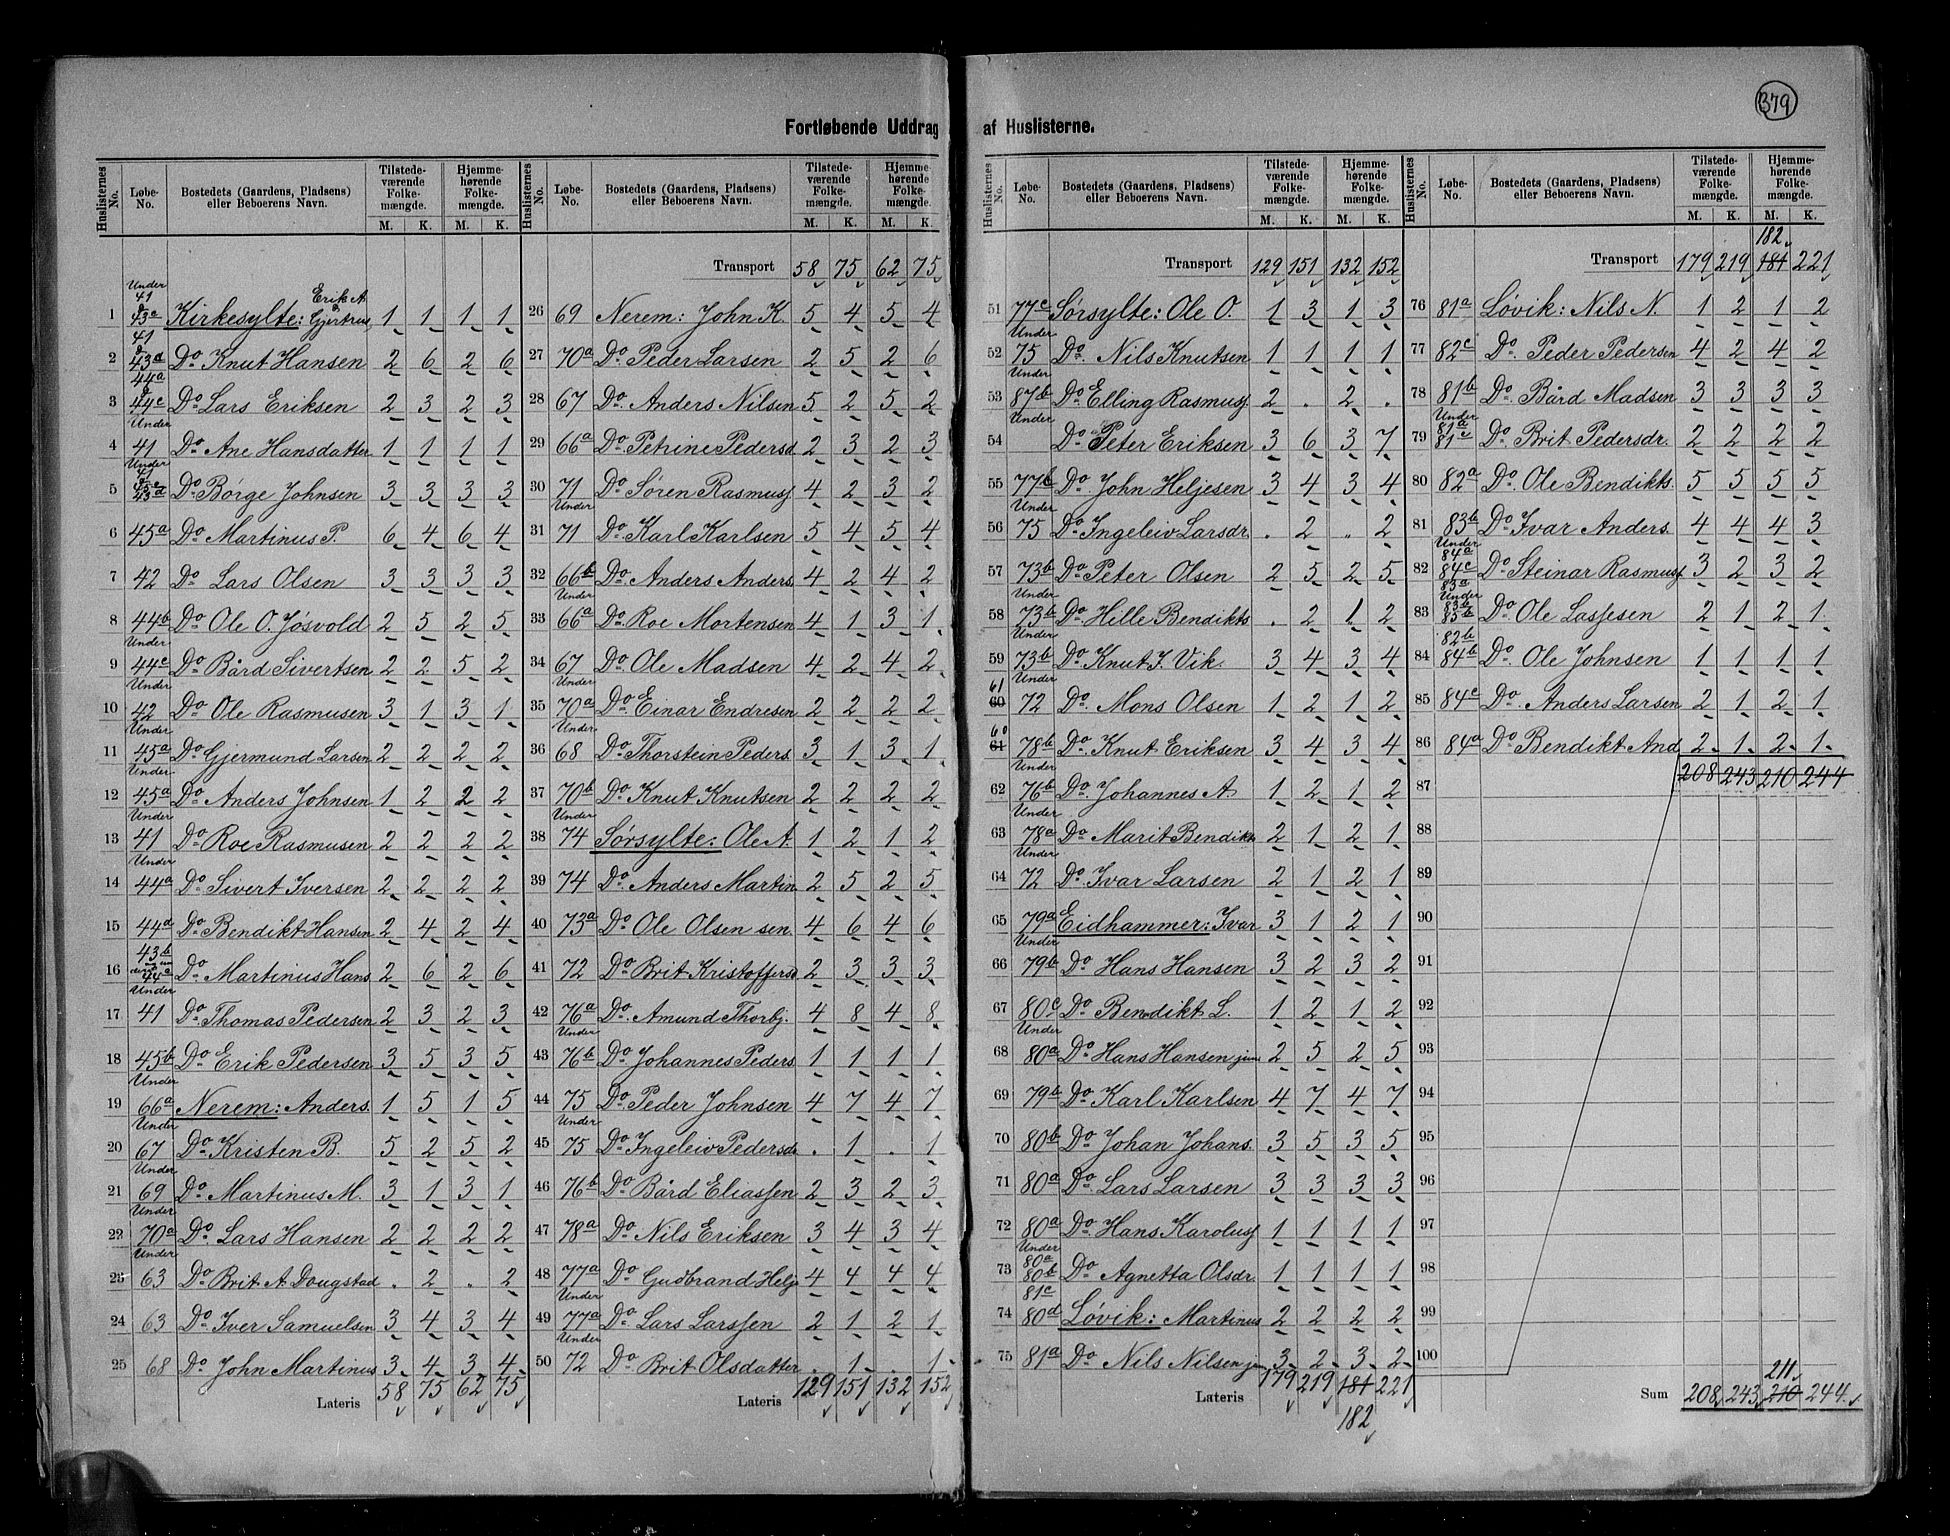 379
Fortløbende Uddrag af Huslisterne.
Huslisternes No. Løbe-No. Bostedets (Gaardens, Pladsens) eller Beboerens Navn. Tilstedeværende Folkemængde. M. K. Hjemmehørende Folkemængde. M. K.
1 Under 41 & 43c Kirkesylte: Erik A. Gjertrus 1 1 1 1
2 41 & 43d Do Knut Hansen 2 6 2 6
3 44a & 44c Do Lars Eriksen 2 3 2 3
4 Under 41 Do Ane Hansdatter 1 1 1 1
5 Under 41 Do Børge Johnsen 3 3 3 3
6 45a Do Martinus P. 6 4 6 4
7 42 Do Lars Olsen 3 3 3 3
8 44b Do Ole O. Jøsvold 2 5 2 5
9 Under 44c Do Bård Sivertsen 2 2 5 2
10 Under 42 Do Ole Rasmusen 3 1 3 1
11 Under 45a Do Gjermund Larsen 2 2 2 2
12 Under 45a Do Anders Johnsen 1 2 2 2
13 Under 41 Do Roe Rasmusen 2 2 2 2
14 Under 44a Do Sivert Iversen 2 2 2 2
15 44d Do Bendikt Hansen 2 4 2 4
16 43b 44c Do Martinus Hans. 2 6 2 6
17 Under 41 Do Thomas Pedersen 2 3 2 3
18 45b Do Erik Pedersen 3 5 3 5
19 Under 66a Nerem: Anders. 1 5 1 5
20 Under 67 Do Kristen B. 5 2 5 2
21 Under 69 Do Martinus M. 3 1 3 1
22 Under 70a Do Lars Hansen 2 2 2 2
23 Under 63 Do Brit A. Dougstad . 2 . 2
24 63 Do Iver Samuelsen 3 4 3 4
25 68 Do John Martinus 3 4 3 4
Lateris 58 75 62 75
Huslisternes No. Løbe-No. Bostedets (Gaardens, Pladsens) eller Beboerens Navn. Tilstedeværende Folkemængde. M. K. Hjemmehørende Folkemængde. M. K.
Transport 58 75 62 75
26 69 Nerem: John K. 5 4 5 4
27 70a Do Peder Larsen 2 5 2 6
28 67 Do Anders Nilsen 5 2 5 2
29 66a Do Petrine Pedersd 2 3 2 3
30 71 Do Søren Rasmusf 4 2 3 2
31 Under 71 Do Karl Karlsen 5 4 5 4
32 66b Do Anders Anders. 4 2 4 2
33 Under 66a Do Roe Mortensen 4 1 3 1
34 67 Do Ole Madsen 4 2 4 2
35 Under 70a Do Einar Endresen 2 2 2 2
36 Under 68 Do Thorstein Peders. 3 1 3 1
37 70b Do Knut Knutsen 2 2 2 2
38 Under 74 Sørsylte: Ole A. 1 2 1 2
39 74 Do Anders Martin 2 5 2 5
40 73a Do Ole Olsen sen. 4 6 4 6
41 72 Do Brit Kristoffersd 2 3 3 3
42 76a Do Amund Thorbj. 4 8 4 8
43 Under 76b Do Johannes Peders 1 1 1 1
44 75 Do Peder Johnsen 4 7 4 7
45 Under 75 Do Ingeleiv Pedersdr . 1 . 1
46 76b Do Bård Eliassen 2 3 2 3
47 78a Do Nils Eriksen 3 4 3 4
48 77a Do Gudbrand Helj. 4 4 4 4
49 Under 77a Do Lars Larssen 2 1 2 1
50 Under 72 Do Brit Olsdatter . 1 . 1
Lateris 129 151 132 152
Huslisternes No. Løbe-No. Bostedets (Gaardens, Pladsens) eller Beboerens Navn. Tilstedeværende Folkemængde. M. K. Hjemmehørende Folkemængde. M. K.
Transport 129 151 132 152
51 77c Sørsylte: Ole O. 1 3 1 3
52 Under 75 Do Nils Knutsen 1 1 1 1
53 Under 87b Do Elling Rasmusf 2 . 2 .
54 Under Do Peter Eriksen 3 6 3 7
55 77b Do John Heljesen 3 4 3 4
56 Under 75 Do Ingeleiv Larsdr. . 2 . 2
57 73b Do Peter Olsen 2 5 2 5
58 Under 73b Do Hille Bendikts . 2 1 2
59 Under 73b Do Knut I. Vik. 3 4 3 4
61 60 Under 72 Do Mons Olsen 1 2 1 2
60 61 78b Do Knut Eriksen 3 4 3 4
62 Under 76b Do Johannes A. 1 2 1 2
63 Under 78a Do Marit Bendikts 2 1 2 1
64 Under 72 Do Ivar Larsen 2 1 2 1
65 79a Eidhammer: Ivar 3 1 2 1
66 Under 79b Do Hans Hansen 3 2 3 2
67 80c Do Bendikt L. 1 2 1 2
68 Under 80a Do Hans Hansen jun 2 5 2 5
69 79b Do Karl Karlsen 4 7 4 7
70 80b Do Johan Johans. 3 5 3 5
71 80a Do Lars Larsen 3 3 3 3
72 80a Do Hans Karolusf 1 1 1 1
73 Under 80a 80b Do Agnetta Olsdr. 1 1 1 1
74 81c 80d Løvik: Martinus 2 2 2 2
75 81a Do Nils Nilsen jun 3 2 3 2
Lateris 179 219 181 221
182
Huslisternes No. Løbe-No. Bostedets (Gaardens, Pladsens) eller Beboerens Navn. Tilstedeværende Folkemængde. M. K. Hjemmehørende Folkemængde. M. K.
182
Transport 179 219 181 221
76 81a Løvik: Nils N. 1 2 1 2
77 82c Do Peder Pedersen 4 2 4 2
78 81b Do Bård Madsen 3 3 3 3
79 Under 81a 81c Do Brit Pedersdr. 2 2 2 2
80 82a Do Ole Bendikts. 5 5 5 5
81 83b Do Ivar Anders. 4 4 4 3
82 Under 84a 84c 83a Do Steinar Rasmusf 3 2 3 2
83 Under 83b Do Ole Lassesen 2 1 2 1
84 82b 84b Do Ole Johnsen 1 1 1 1
85 84c Do Anders Larsen 2 1 2 1
86 84a Do Bendikt And 2 1 2 1
87 208 243 210 244
88
89
90
91
92
93
94
95
96
97
98
99
100
211
Sum 208 243 210 244